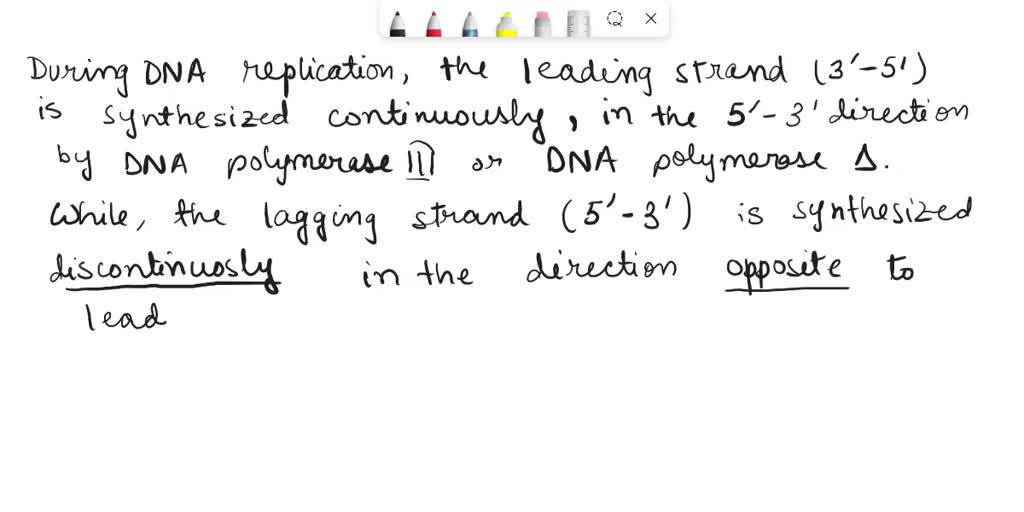 During DNA replication, the leading strand (3'-5')
is synthesized continuously, in the 5'-3' direction
by DNA polymerase III or DNA polymerase Δ.
While, the lagging strand (5'-3') is synthesized
discontinuosly in the direction opposite to
lead